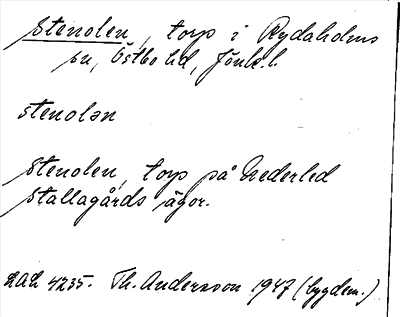 Stenolen, torp i Rydaholms
sn, Östbo hd, Jönk. l.
stenolən
Stenolen, torp på Nederled
Stallagårds ägor.
ULL 4235. Th. Andersson 1947 (bygdem.)